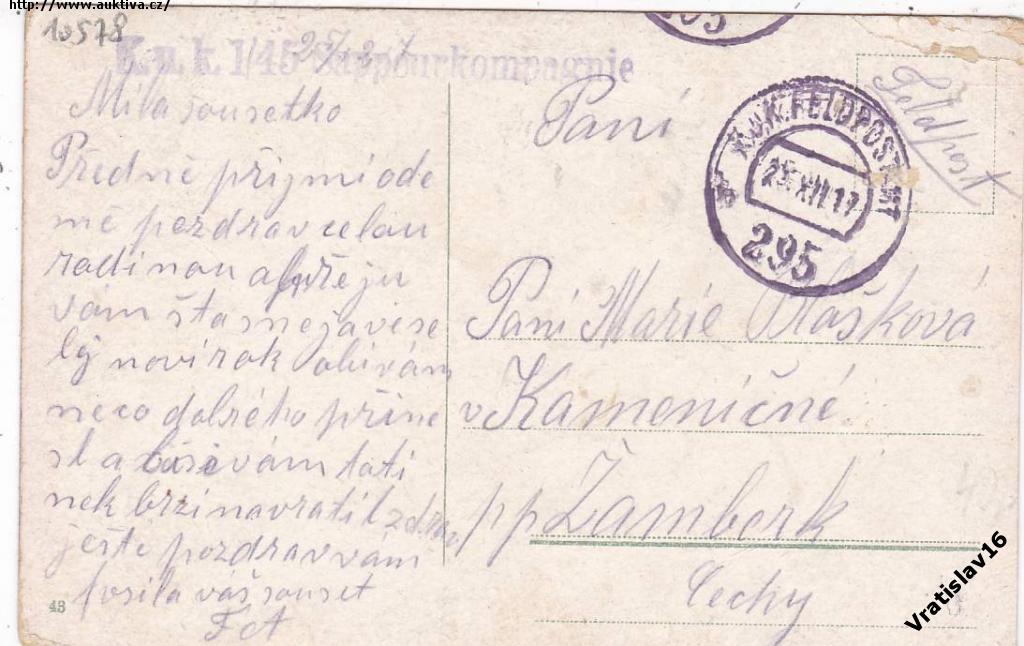 http://www.auktiva.cz/
10578
K.u.k. 1/45 Sappeurkompagnie
295
Milá sousetko
Předně přijmi ode
mě pozdrav celou
rodinou a přeju
vám štasneja vese
lý noví rok abi vám
neco dobrého přine
sl a abi se vám tati
nek brzi navratil zdrav
ještě pozdrav vám
posila váš souset
F A
43
Feldpost
K.u.K. FELDPOSTAMT
25 XII 17
295
Paní
Paní Marie Blašková
v Kameničné
pp Žamberk
Čechy
Vratislav16